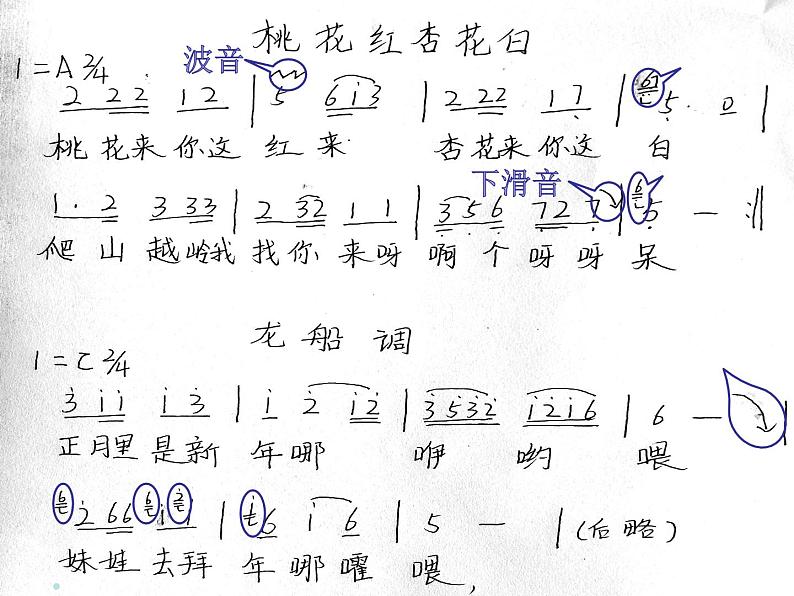 桃花红杏花白
1=A 2/4
波音
2 2 2 1 2 | 5 6 i 3 | 2 2 2 1 7 | 5· 0 |
桃花来你这红来 杏花来你这白
下滑音
1· 2 3 3 3 | 2 3 2 1 1 | 3 5 6 7 2 7 | 5 — :||
爬山越岭我找你来呀啊个呀呀呆
龙船调
1=C 2/4
3 i i i 3 | i 2 i 2 | 3 5 3 2 i 2 i 6 | 6 — |
正月里是新年哪咿哟喂
2 6 6 i i | 6 i 6 | 5 — | (后略)
妹娃去拜年哪嚯喂,